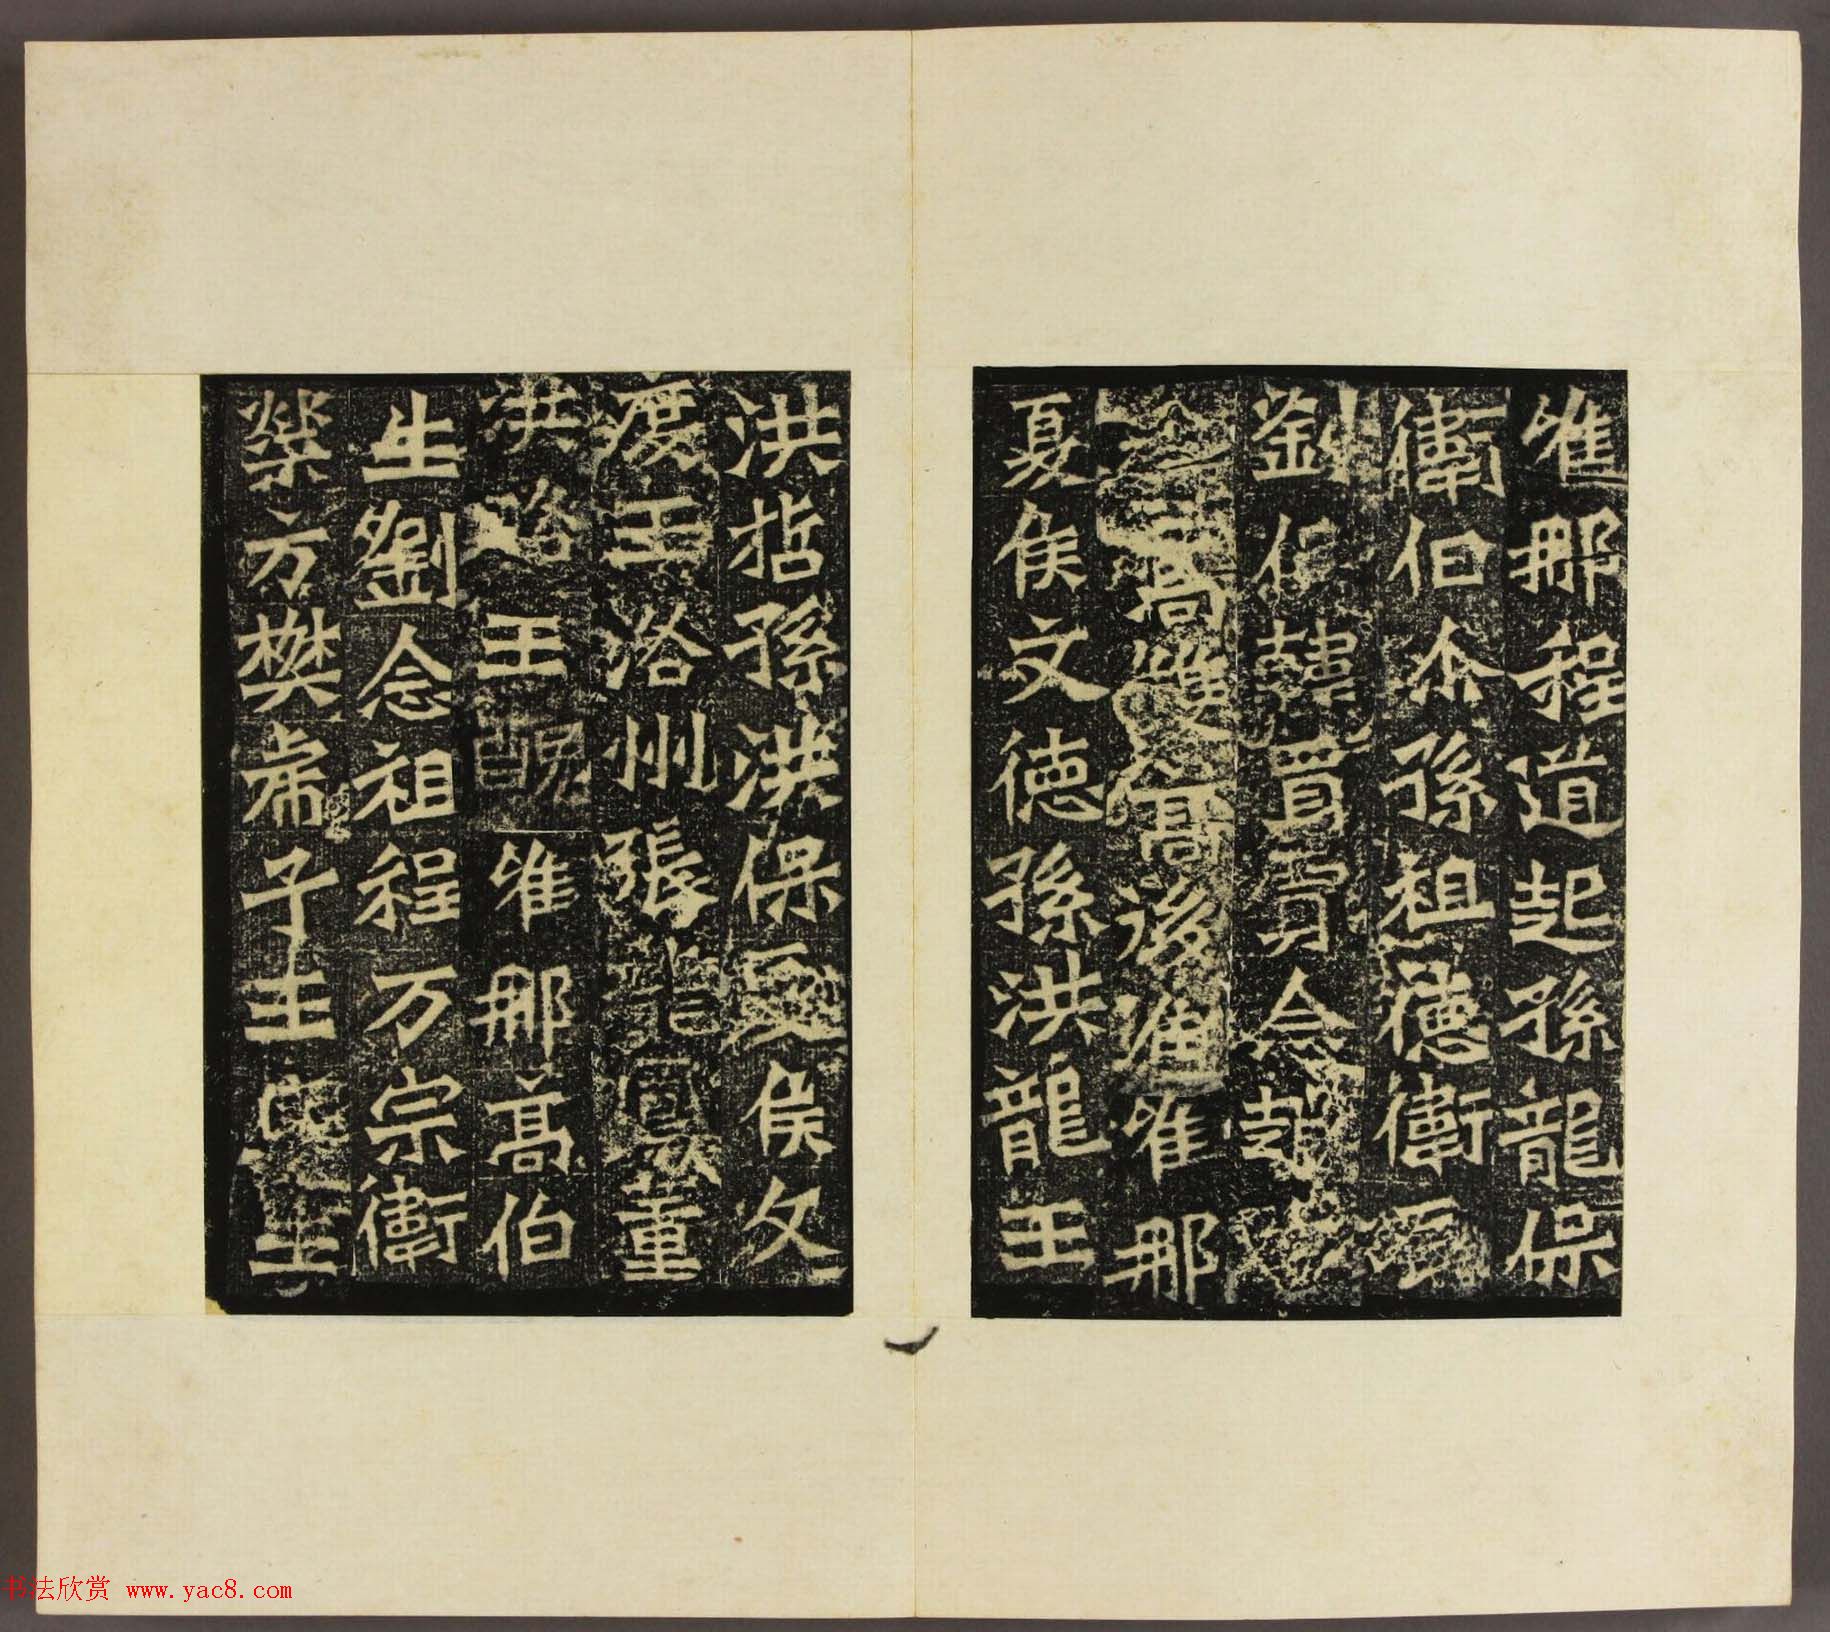 唯那程道起孫龍保
衛伯介孫祖德衛
劉 韓買 念
高雙 高後進唯那
夏侯文德孫洪龍王
洪哲孫洪保 侯文
度王洛州張龍鳳董
洪洛王醜唯那高伯
生劉念祖程万宗衛
榮方樊虎子王 王
书法欣赏 www.yac8.com